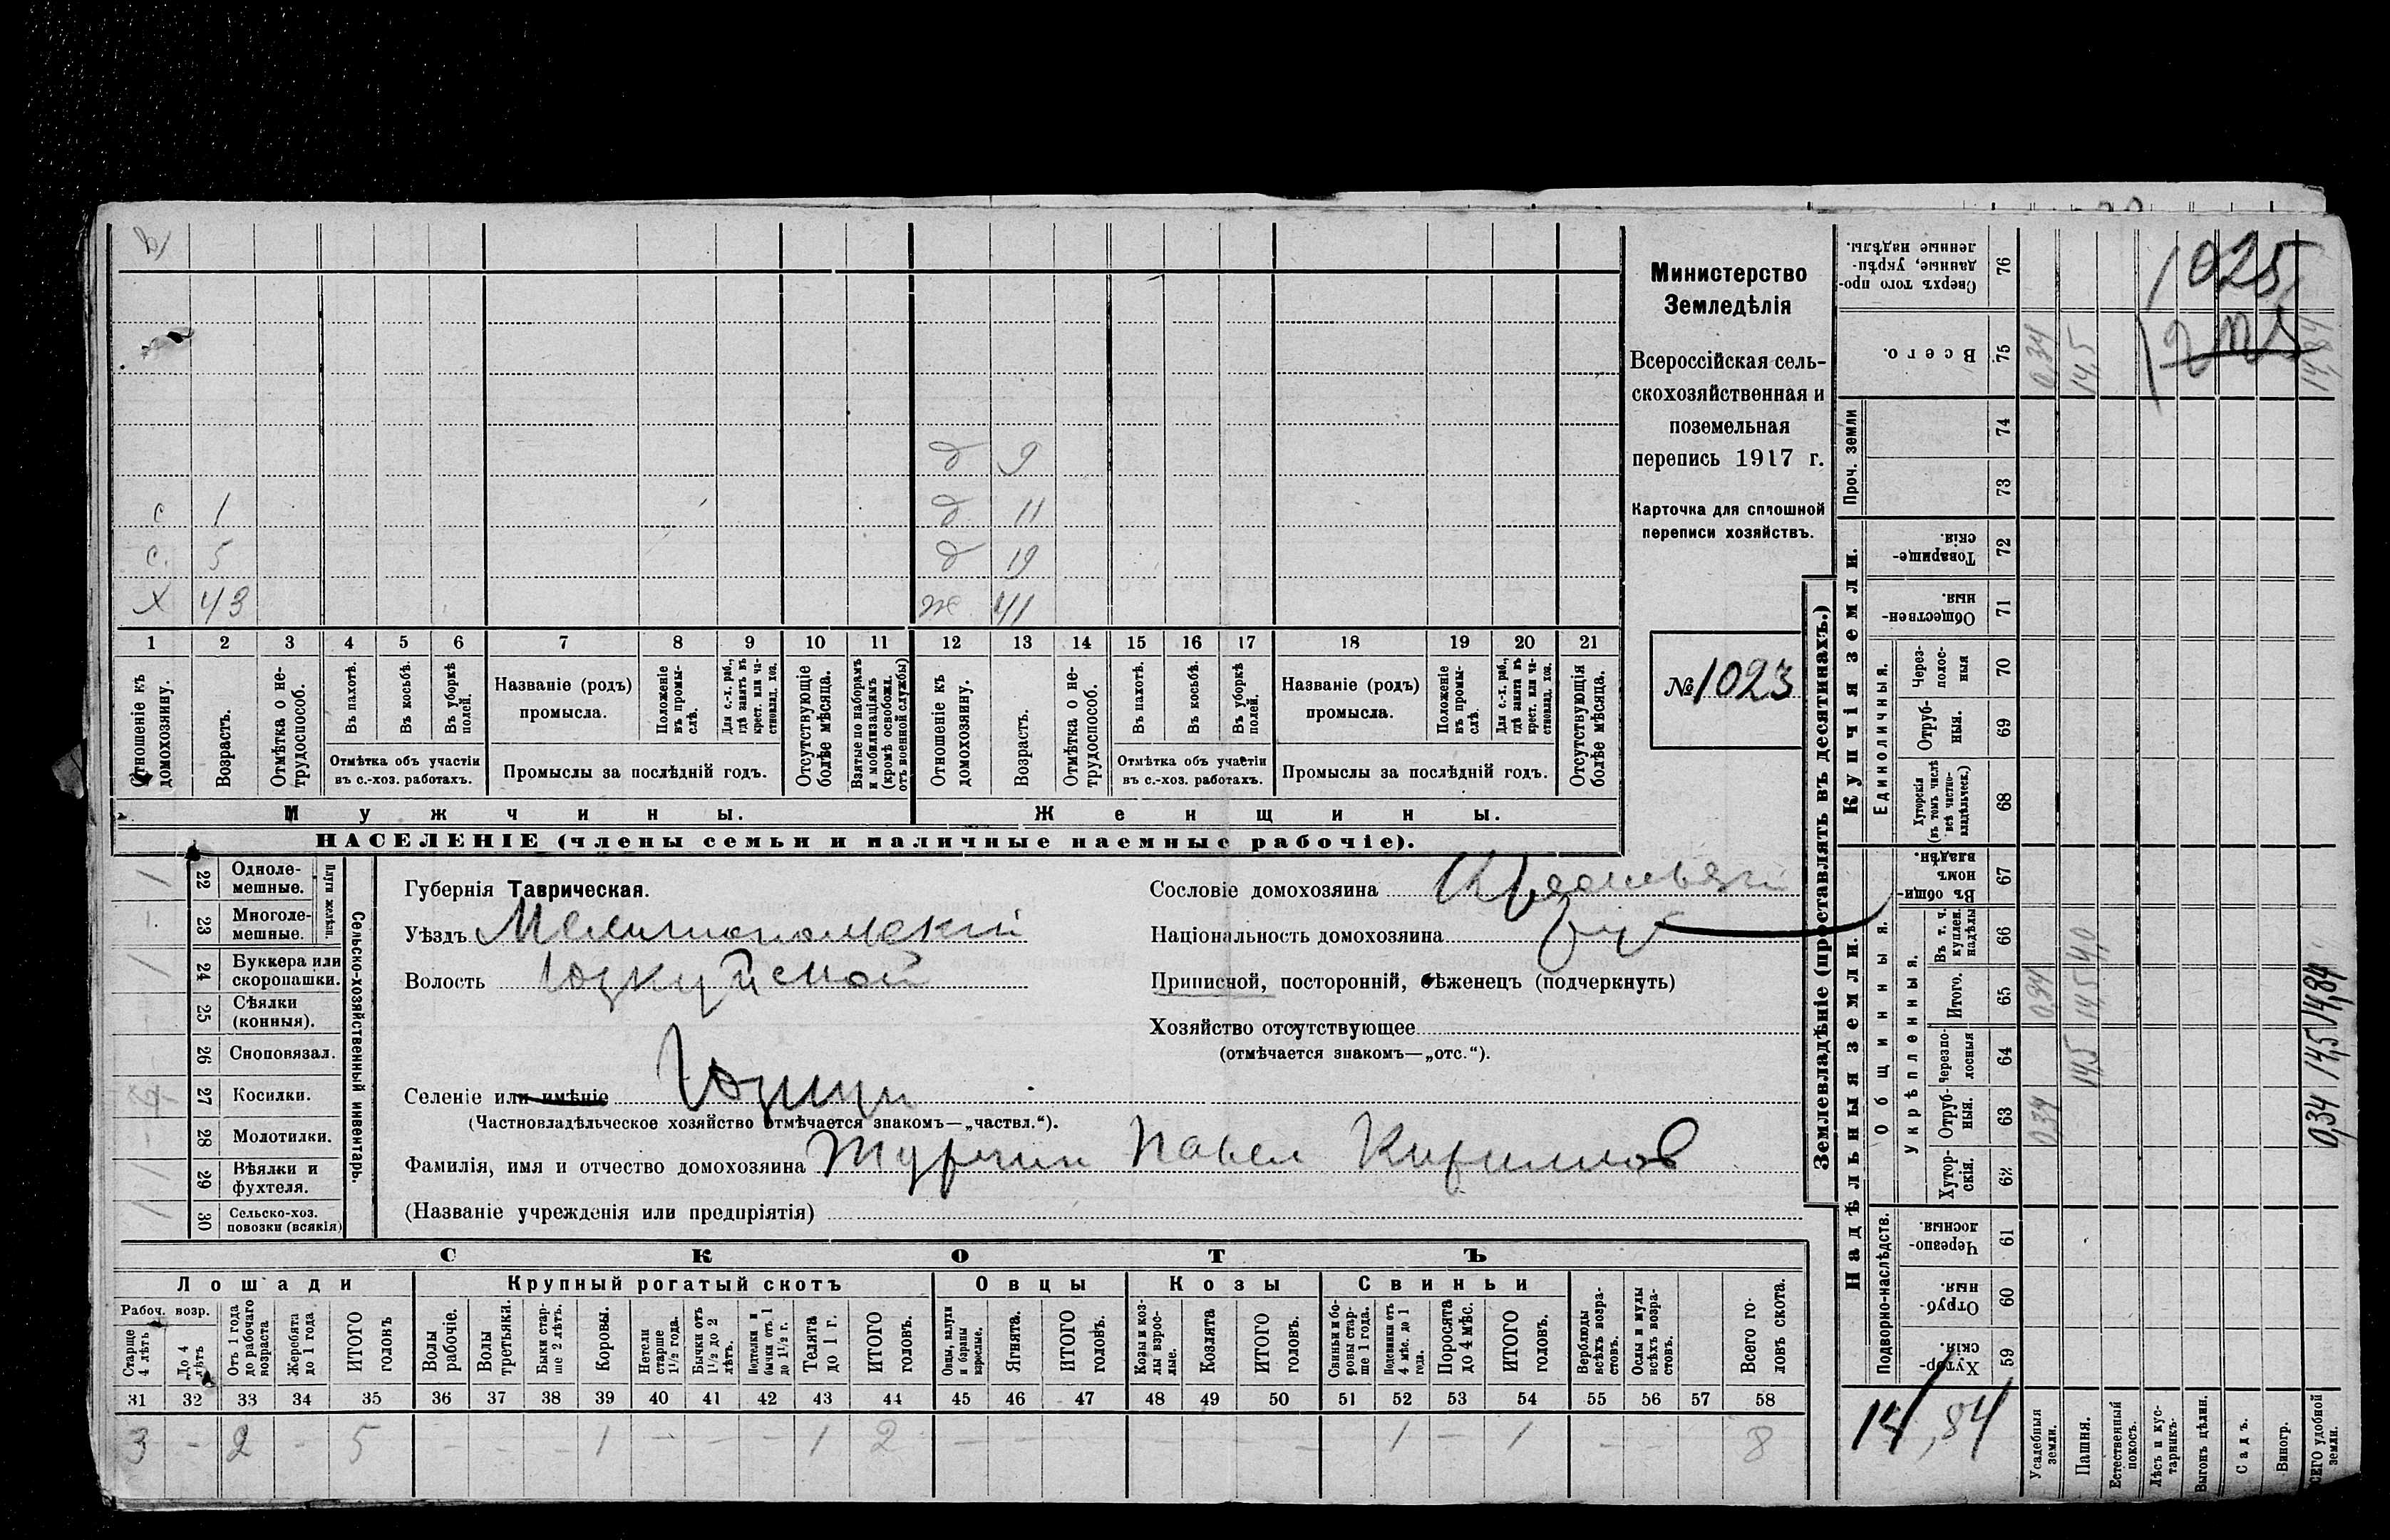 Министерство
Земледѣлія
Всероссійская сель-
скохозяйственная и
поземельная
перепись 1917 г.
Карточка для сплошной
переписи хозяйствъ.
№ 1023
д 9
с 1 д 11
с. 5 д 19
х 43 ж 41
1 2 3 4 5 6 7 8 9 10 11 12 13 14 15 16 17 18 19 20 21
Отношеніе къ домохозяину.
Возрастъ.
Отмѣтка о не-трудоспособ.
Въ пахотѣ.
Въ косьбѣ.
Въ уборкѣ полей.
Отмѣтка объ участіи
въ с.-хоз. работахъ.
Названіе (родъ)
промысла.
Положеніе въ промы-слѣ.
Для с.-х. раб., гдѣ занятъ въ крест. или ча-стновлад. хоз.
Промыслы за послѣдній годъ.
Отсутствующіе болѣе мѣсяца.
Взятые по наборамъ и мобилизаціямъ (кромѣ освобожд. отъ военной службы)
Отношеніе къ домохозяину.
Возрастъ.
Отмѣтка о не-трудоспособ.
Въ пахотѣ.
Въ косьбѣ.
Въ уборкѣ полей.
Отмѣтка объ участіи
въ с.-хоз. работахъ.
Названіе (родъ)
промысла.
Положеніе въ промы-слѣ.
Для с.-х. раб., гдѣ занята въ крест. или ча-стновлад. хоз.
Промыслы за послѣдній годъ.
Отсутствующія болѣе мѣсяца.
Мужчины. Женщины.
НАСЕЛЕНІЕ (члены семьи и наличные наемные рабочіе).
Сельско-хозяйственный инвентарь.
Плуги желѣзн.
1 22 Одноле-мешные.
- 23 Многоле-мешные.
1 24 Буккера или скоропашки.
25 Сѣялки (конныя).
26 Сноповязал.
27 Косилки.
- 28 Молотилки.
1 29 Вѣялки и фухтеля.
1 30 Сельско-хоз. повозки (всякія)
Губернія Таврическая.
Уѣздъ Мелитопольскій
Волость Юзкуйской
Селеніе или имѣніе Юзкуи
(Частновладѣльческое хозяйство отмѣчается знакомъ—„частвл.“).
Фамилія, имя и отчество домохозяина Турчин Павел Кирилловъ
(Названіе учрежденія или предпріятія)
Сословіе домохозяина
Національность домохозяина
Приписной, посторонній, бѣженецъ (подчеркнуть)
Хозяйство отсутствующее
(отмѣчается знакомъ—„отс.“).
СКОТЪ
Лошади Крупный рогатый скотъ Овцы Козы Свиньи
Рабоч. возр.
Старше 4 лѣтъ
До 4 лѣтъ
Отъ 1 года до рабочаго возраста
Жеребята до 1 года
ИТОГО головъ
Волы рабочіе.
Волы третьяки.
Быки стар-ше 2 лѣтъ.
Коровы.
Нетели старше 1½ года.
Бычки отъ 1½ до 2 лѣтъ.
Подтелки и бычки отъ 1 до 1½ г.
Телята до 1 г.
ИТОГО головъ.
Овцы, валухи и бараны взрослые.
Ягнята.
ИТОГО головъ.
Козы и коз-лы взрос-лые.
Козлята
ИТОГО головъ.
Свиньи и бо-ровы стар-ше 1 года.
Подсвинки отъ 4 мѣс. до 1 года.
Поросята до 4 мѣс.
ИТОГО головъ.
Верблюды всѣхъ возра-стовъ.
Ослы и мулы всѣхъ возра-стовъ.
Всего го-ловъ скота.
31 32 33 34 35 36 37 38 39 40 41 42 43 44 45 46 47 48 49 50 51 52 53 54 55 56 57 58
3 - 2 - 5 - - - 1 - - - 1 2 - - - - - - - 1 - 1 - - 8
Землевладѣніе (проставлять въ десятинахъ.)
Купчія земли.
Надѣльныя земли.
Проч. земли
Единоличныя.
Общинныя.
Укрѣпленныя.
Подворно-наслѣдств.
Сверхъ того про-данные, укрѣп-ленные надѣлы. 76
Всего. 75 0,34 14,5 14,84
74
73
Товарище-скія. 72
Обществен-ныя. 71
Через-полос-ныя 70
Отруб-ныя. 69
Хуторскія (въ томъ числѣ всѣ частно-владѣльческ.) 68
Въ общи-номъ владѣн. 67
Въ т. ч. куплен. надѣлы 66
Итого. 65 0,34 14,5 14,84
Черезпо-лосныя 64 14,5
Отруб-ныя. 63 0,34
Хутор-скія. 62
Черезпо-лосныя. 61
Отруб-ныя. 60
Хутор-скія. 59
1025
14,84
0,34 14,5 14,84
Усадебныя земли.
Пашня.
Естественный покосъ.
Лѣсъ и кус-тарникъ.
Выгонъ цѣлин.
Садъ.
Виногр.
ВСЕГО удобной земли.